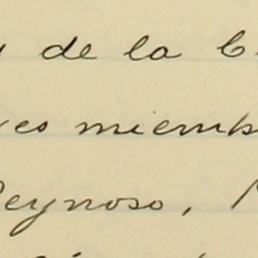 y de la C
es miemb
Reynoso,